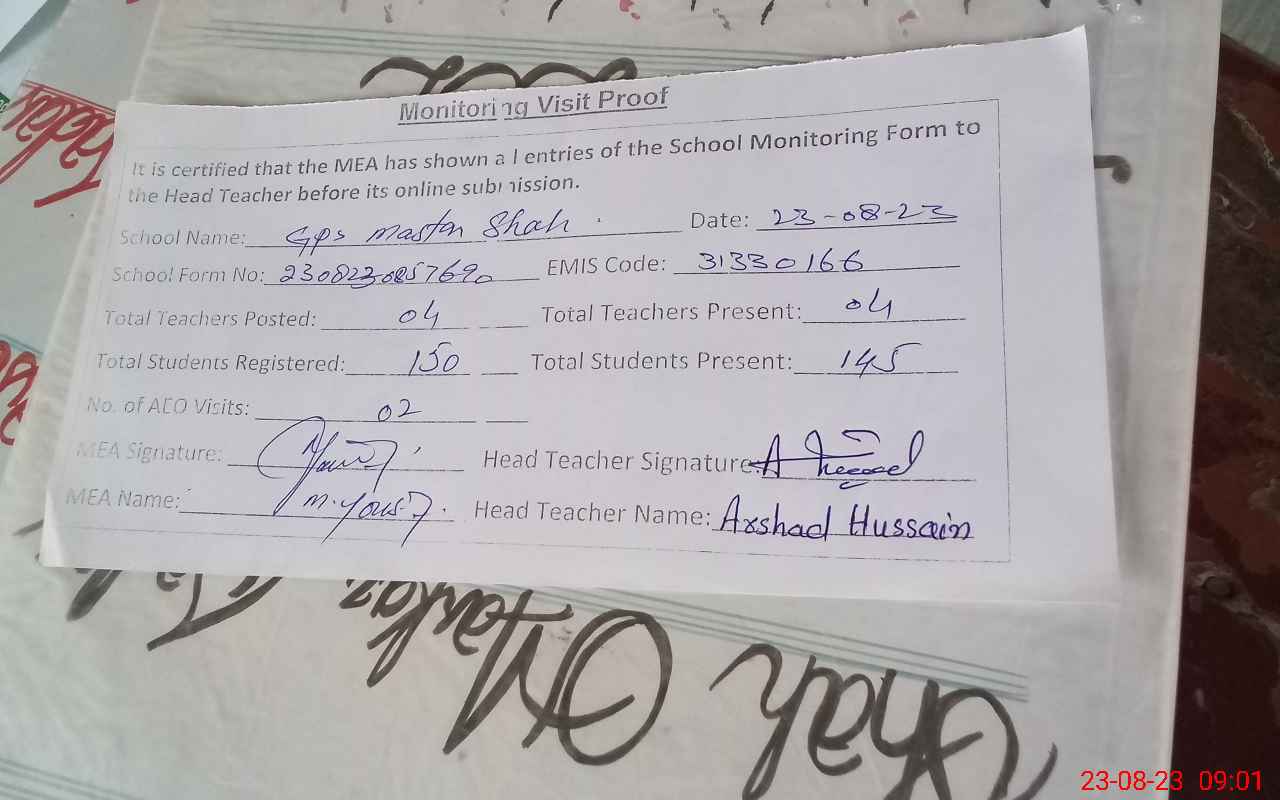 Monitoring Visit Proof
It is certified that the MEA has shown all entries of the School Monitoring Form to
the Head Teacher before its online submission.
School Name: GPS mastan Shah Date: 23-08-23
School Form No: 2308230857690 EMIS Code: 31330166
Total Teachers Posted: 04 Total Teachers Present: 04
Total Students Registered: 150 Total Students Present: 145
No. of AEO Visits: 02
MEA Signature: Head Teacher Signature:
MEA Name: M. Yousaf Head Teacher Name: Arshad Hussain
Shah
23-08-23 09:01